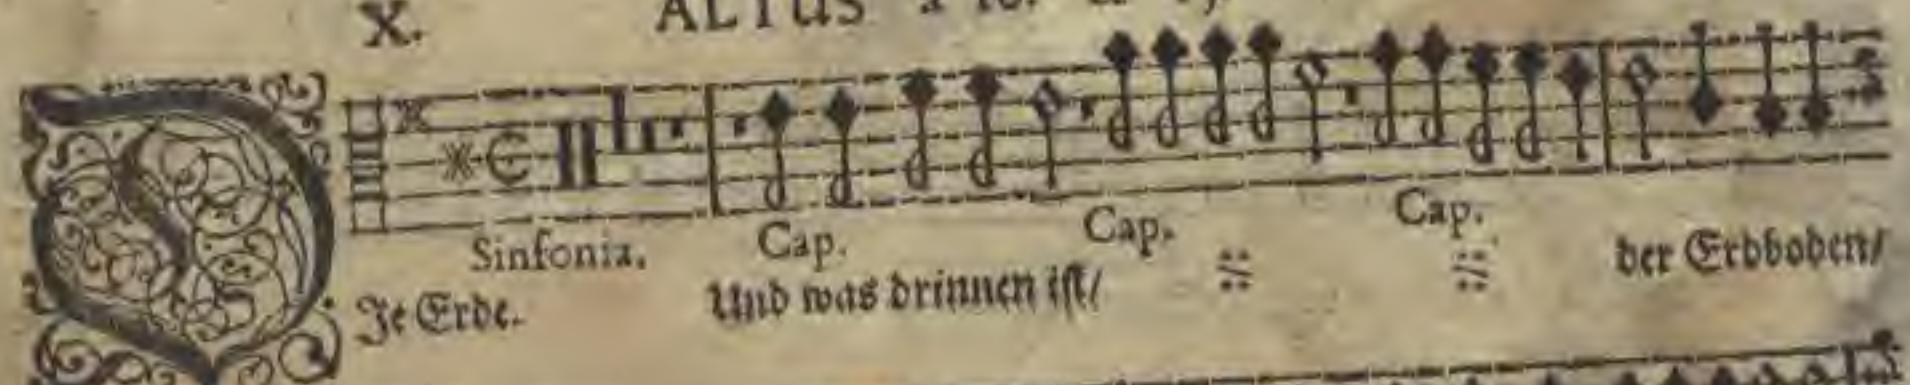 X. ALTUS a 10.
Sinfonia. Cap. Cap. Cap.
DJe Erde. Und was drinnen ist/ der Erdboden/